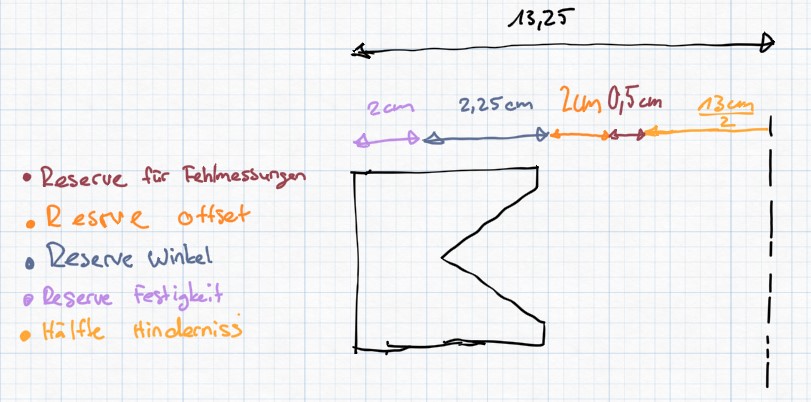 13,25
2cm 2,25cm 2cm 0,5cm 13cm
2
• Reserve für Fehlmessungen
• Resrve offset
• Reserve Winkel
• Reserve Festigkeit
• Hälfte Hinderniss